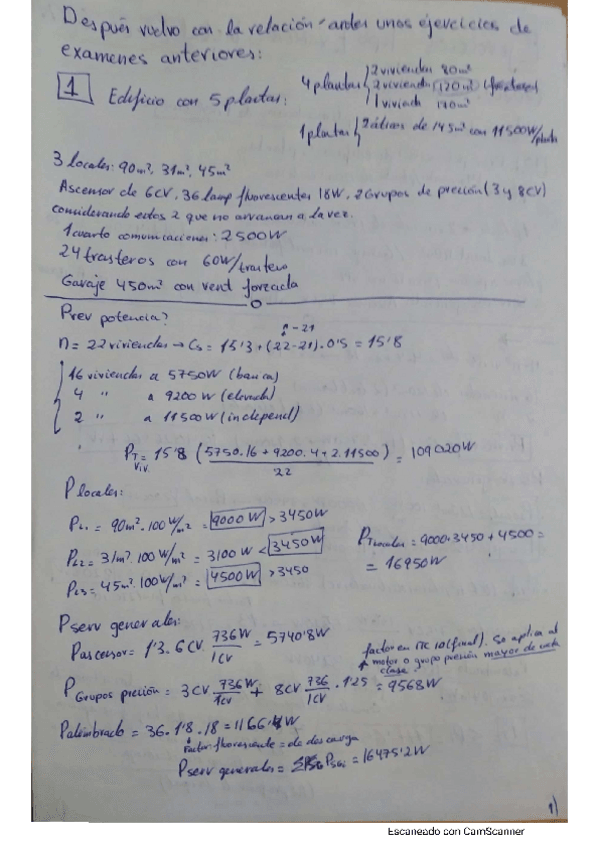 Después vuelvo con la relación, antes unos ejercicios de
examenes anteriores:
1 Edificio con 5 plantas:
4 plantas { 2 viviendas 80m²
2 viviendas 120m²
1 vivienda 170m²
1 planta { 2 áticos de 145m² con 11500W/
3 locales: 90m², 31m², 45m²
Ascensor de 6CV, 36 lamp fluorescentes 18W, 2 Grupos de preción (3 y 8CV)
considerando estos 2 que no arrancan a la vez.
1 cuarto comunicaciones: 2500W
24 trasteros con 60W/trastero
Garaje 450m² con vent forzada
Prev potencia?
n-21
n = 22 viviendas → Cs = 15'3 + (22-21)·0'5 = 15'8
16 viviendas a 5750W (basica)
4 " a 9200W (elevada)
2 " a 11500W (independ)
PT viv. = 15'8 (5750·16 + 9200·4 + 2·11500 / 22) = 109020W
P locales:
PL1 = 90m²·100 W/m² = 9000W > 3450W
PL2 = 31m²·100 W/m² = 3100W < 3450W
PL3 = 45m²·100W/m² = 4500W > 3450
PTlocales = 9000+3450+4500 =
= 16950W
P serv generales:
Pascensor = 1'3·6CV·736W/1CV = 5740'8W
factor en ITC 10 (final). Se aplica al
motor o grupo preción mayor de cada
clase
P Grupos preción = 3CV 736W/1CV + 8CV 736/1CV · 1'25 = 9568W
Palumbrado = 36·1'8·18 = 1166'4W
Factor fluorescente = de descarga
Pserv generales = Σ PSGi = 16475'2W
1)
Escaneado con CamScanner